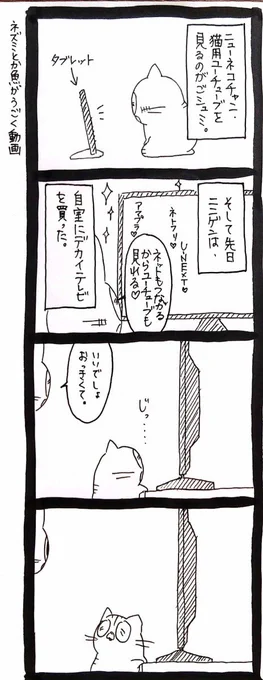 ネズミとか魚がうごく動画
ニューネコチャン、
猫用ユーチューブを
見るのがごシュミ。
タブレット
そして先日
ニンゲンは、
U-NEXT♡
ネトフリ♡
アマプラ♡
ネットもつながる
からユーチューブも
見れる♡
自室にデカイテレビ
を買った。
いいでしょ
おっきくて。
じっ・・・・